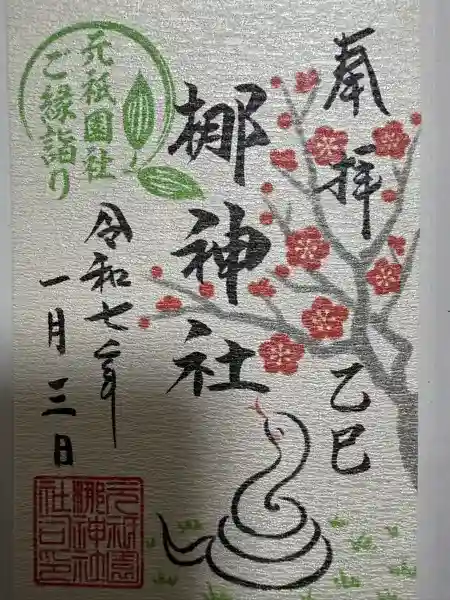 奉拝
乙巳
梛神社
令和七年
一月三日
元祇園社
ご縁詣り
元祇園
梛神社
社司之印